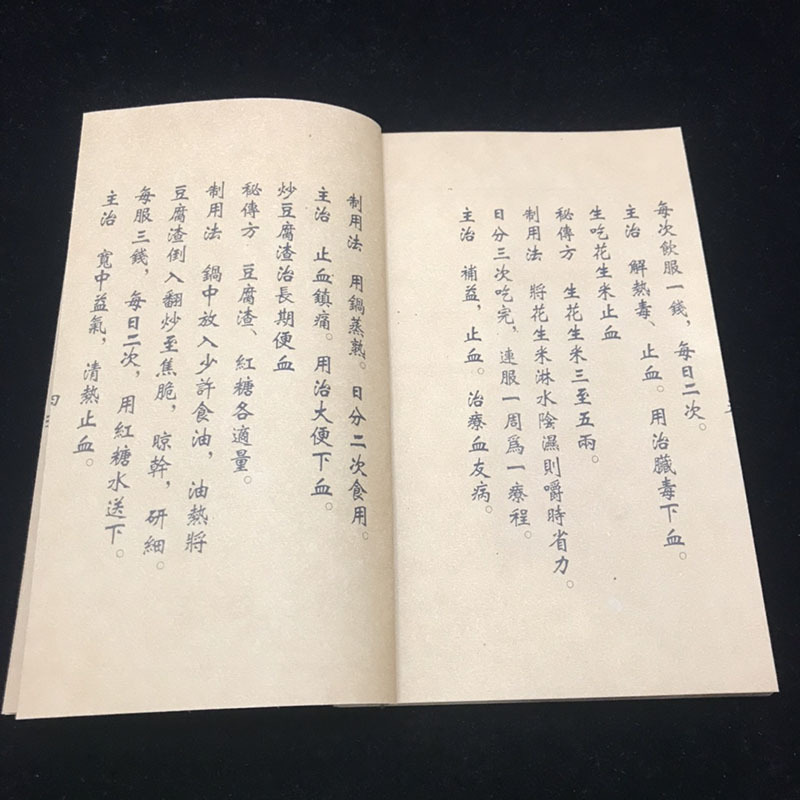 每次飲服一錢，每日二次。
主治　解熱毒、止血。用治臟毒下血。
生吃花生米止血
秘傳方　生花生米三至五兩。
制用法　將花生米淋水陰濕則嚼時省力。
日分三次吃完，連服一周爲一療程。
主治　補益，止血。治療血友病。
制用法　用鍋蒸熟。日分二次食用。
主治　止血鎮痛。用治大便下血。
炒豆腐渣治長期便血
秘傳方　豆腐渣、紅糖各適量。
制用法　鍋中放入少許食油，油熱將
豆腐渣倒入翻炒至焦脆，晾幹，研細。
每服三錢，每日二次，用紅糖水送下。
主治　寬中益氣，清熱止血。